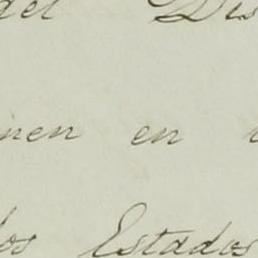 del Dis
nen en
los Estados